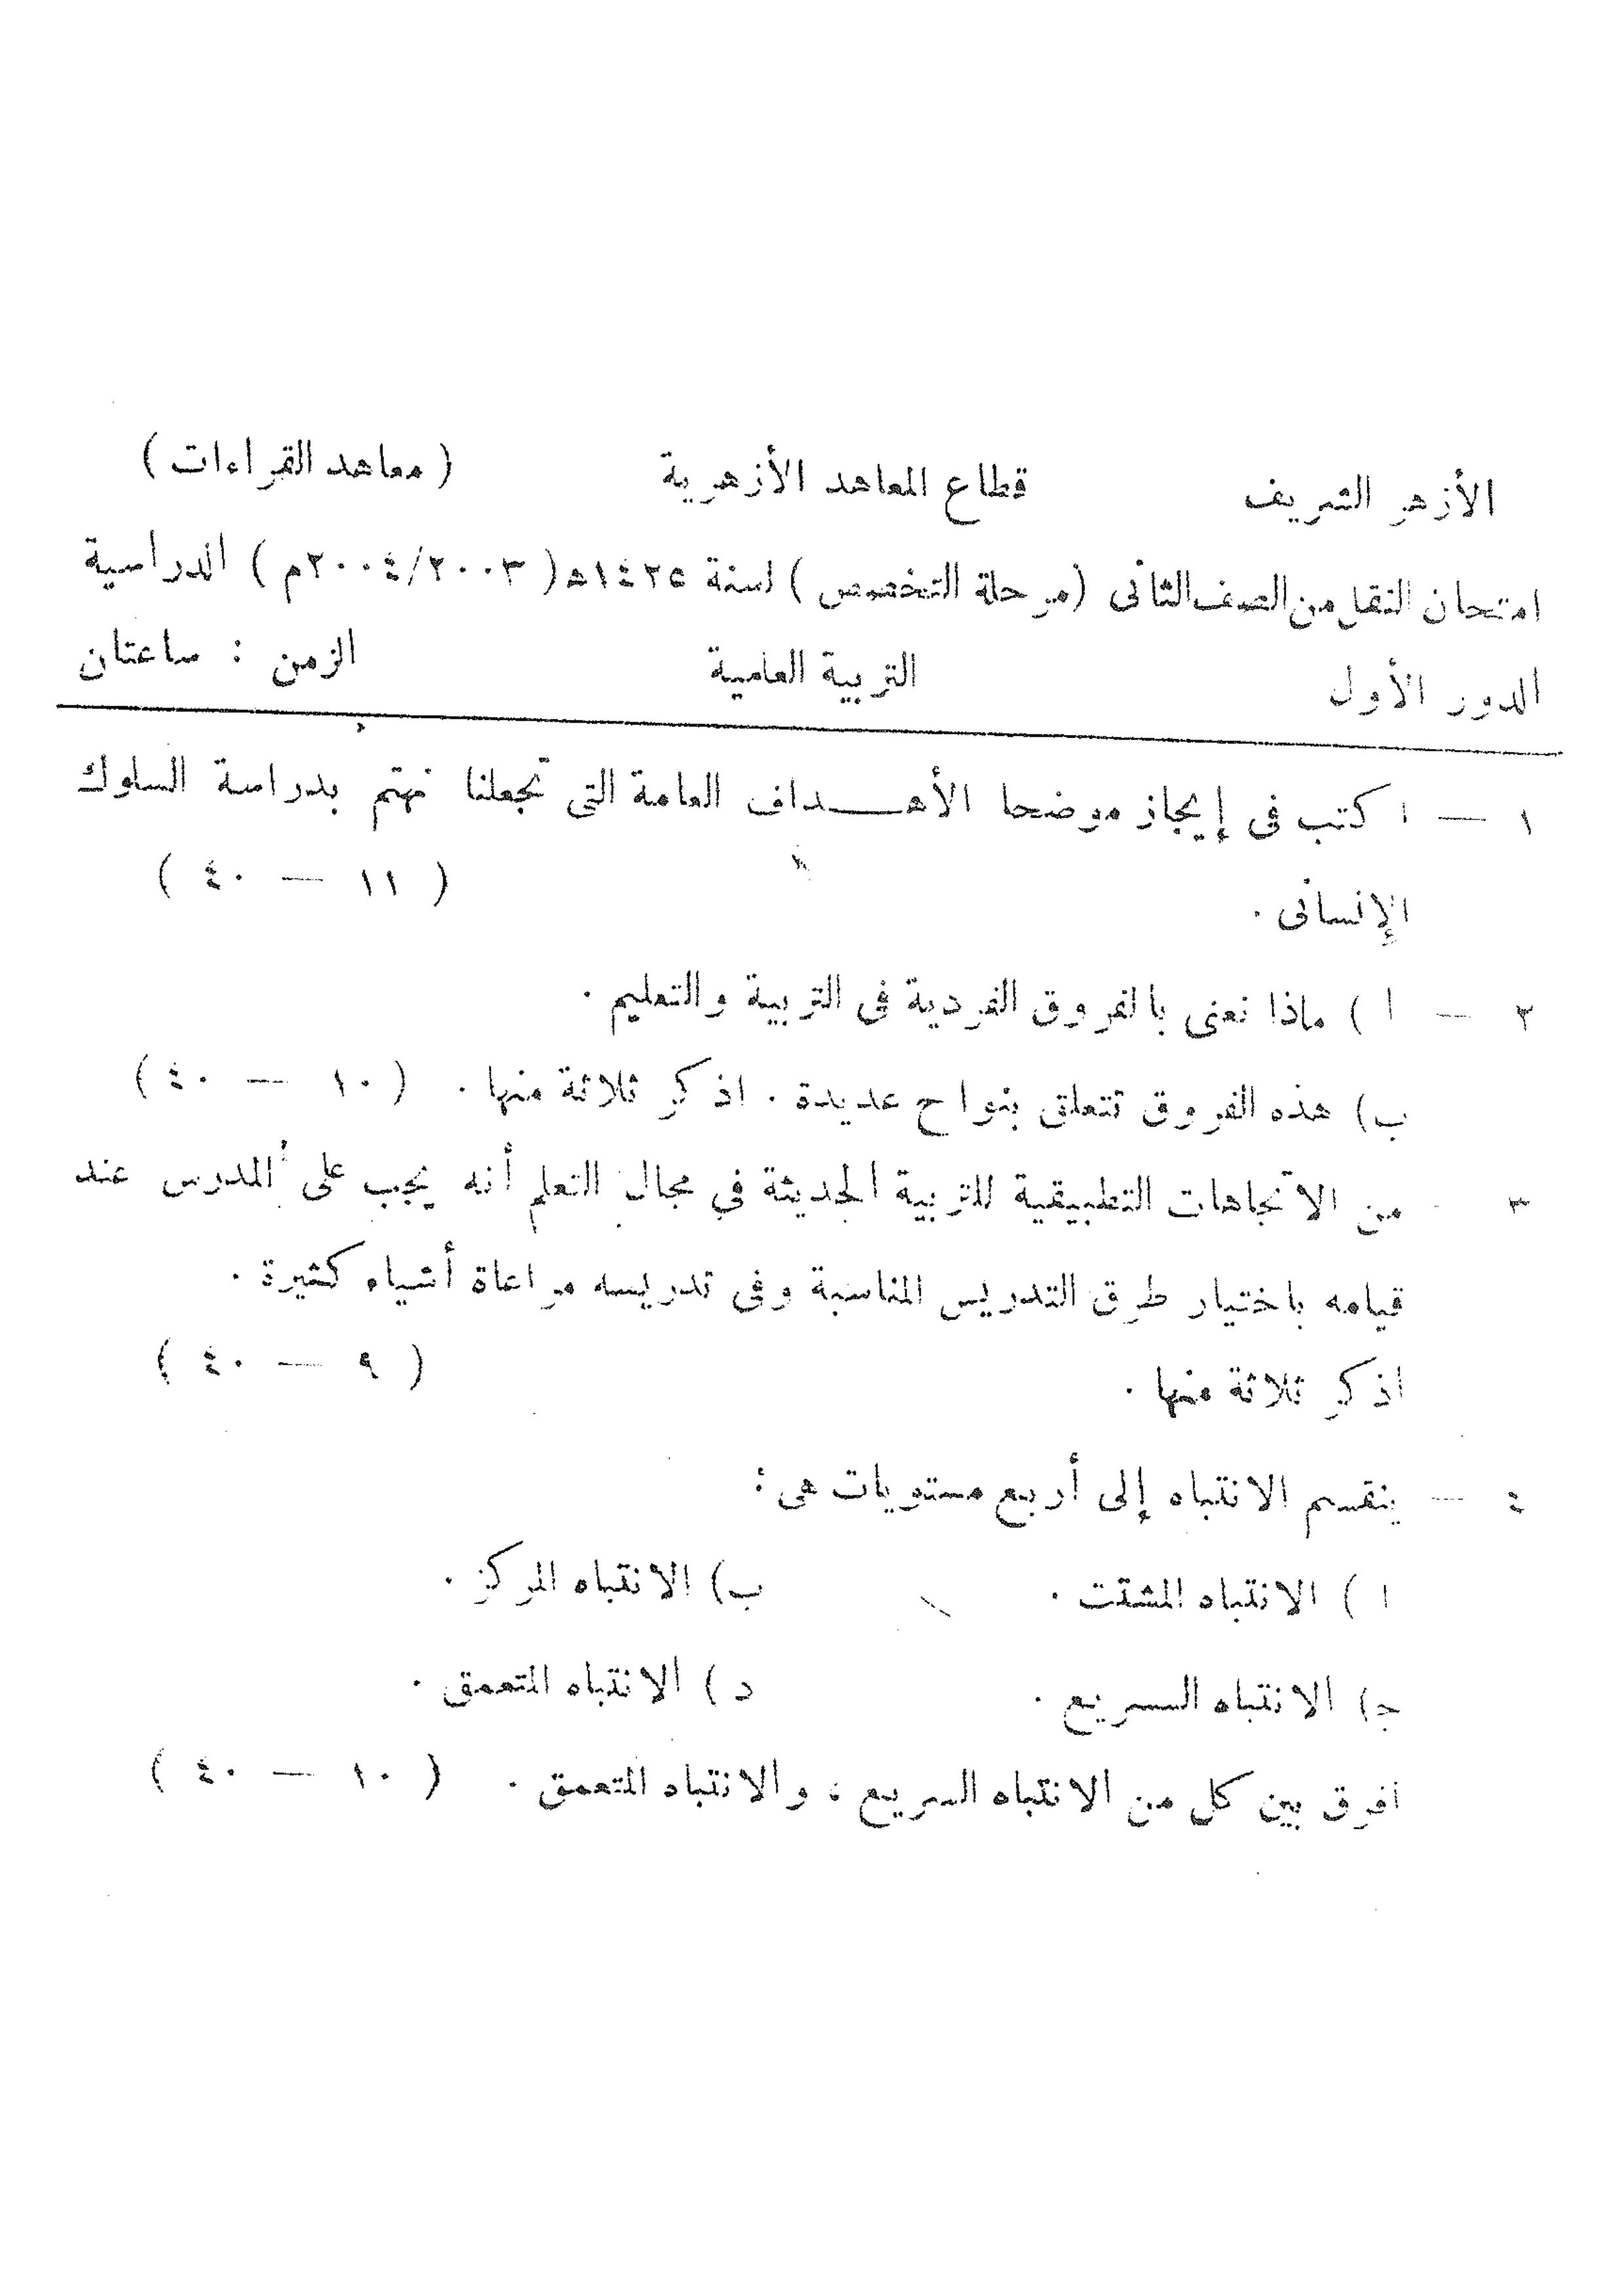 الأزهر الشريف قطاع المعاهد الأزهرية ( معاهد القراءات )
امتحان النقل من الصف الثانى ( مرحلة التخصص ) لسنة ١٤٢٥ه ( ٢٠٠٤/٢٠٠٣م ) الدراسية
الدور الأول التربية العامية الزمن : ساعتان
١ — اكتب فى إيجاز موضحا الأهـــداف العامة التى تجعلنا نهتم بدراسة السلوك
الإنسانى . ( ١١ — ٤٠ )
٢ — أ ) ماذا نعنى بالفروق الفردية فى التربية والتعليم .
ب) هذه الفروق تتعلق بنواح عديدة . اذكر ثلاثة منها . ( ١٠ — ٤٠ )
٣ - من الاتجاهات التطبيقية للتربية الحديثة في مجال التعلم أنه يجب على المدرس عند
قيامه باختيار طرق التدريس المناسبة وفى تدريسه مراعاة أشياء كثيرة .
اذكر ثلاثة منها . ( ٩ — ٤٠ )
٤ — ينقسم الانتباه إلى أربع مستويات هى :
ا ) الانتباه المشتت . ب) الانتباه المركز .
ج) الانتباه السريع . د ) الانتباه المتعمق .
افرق بين كل من الانتباه السريع ، والانتباه المتعمق . ( ١٠ — ٤٠ )